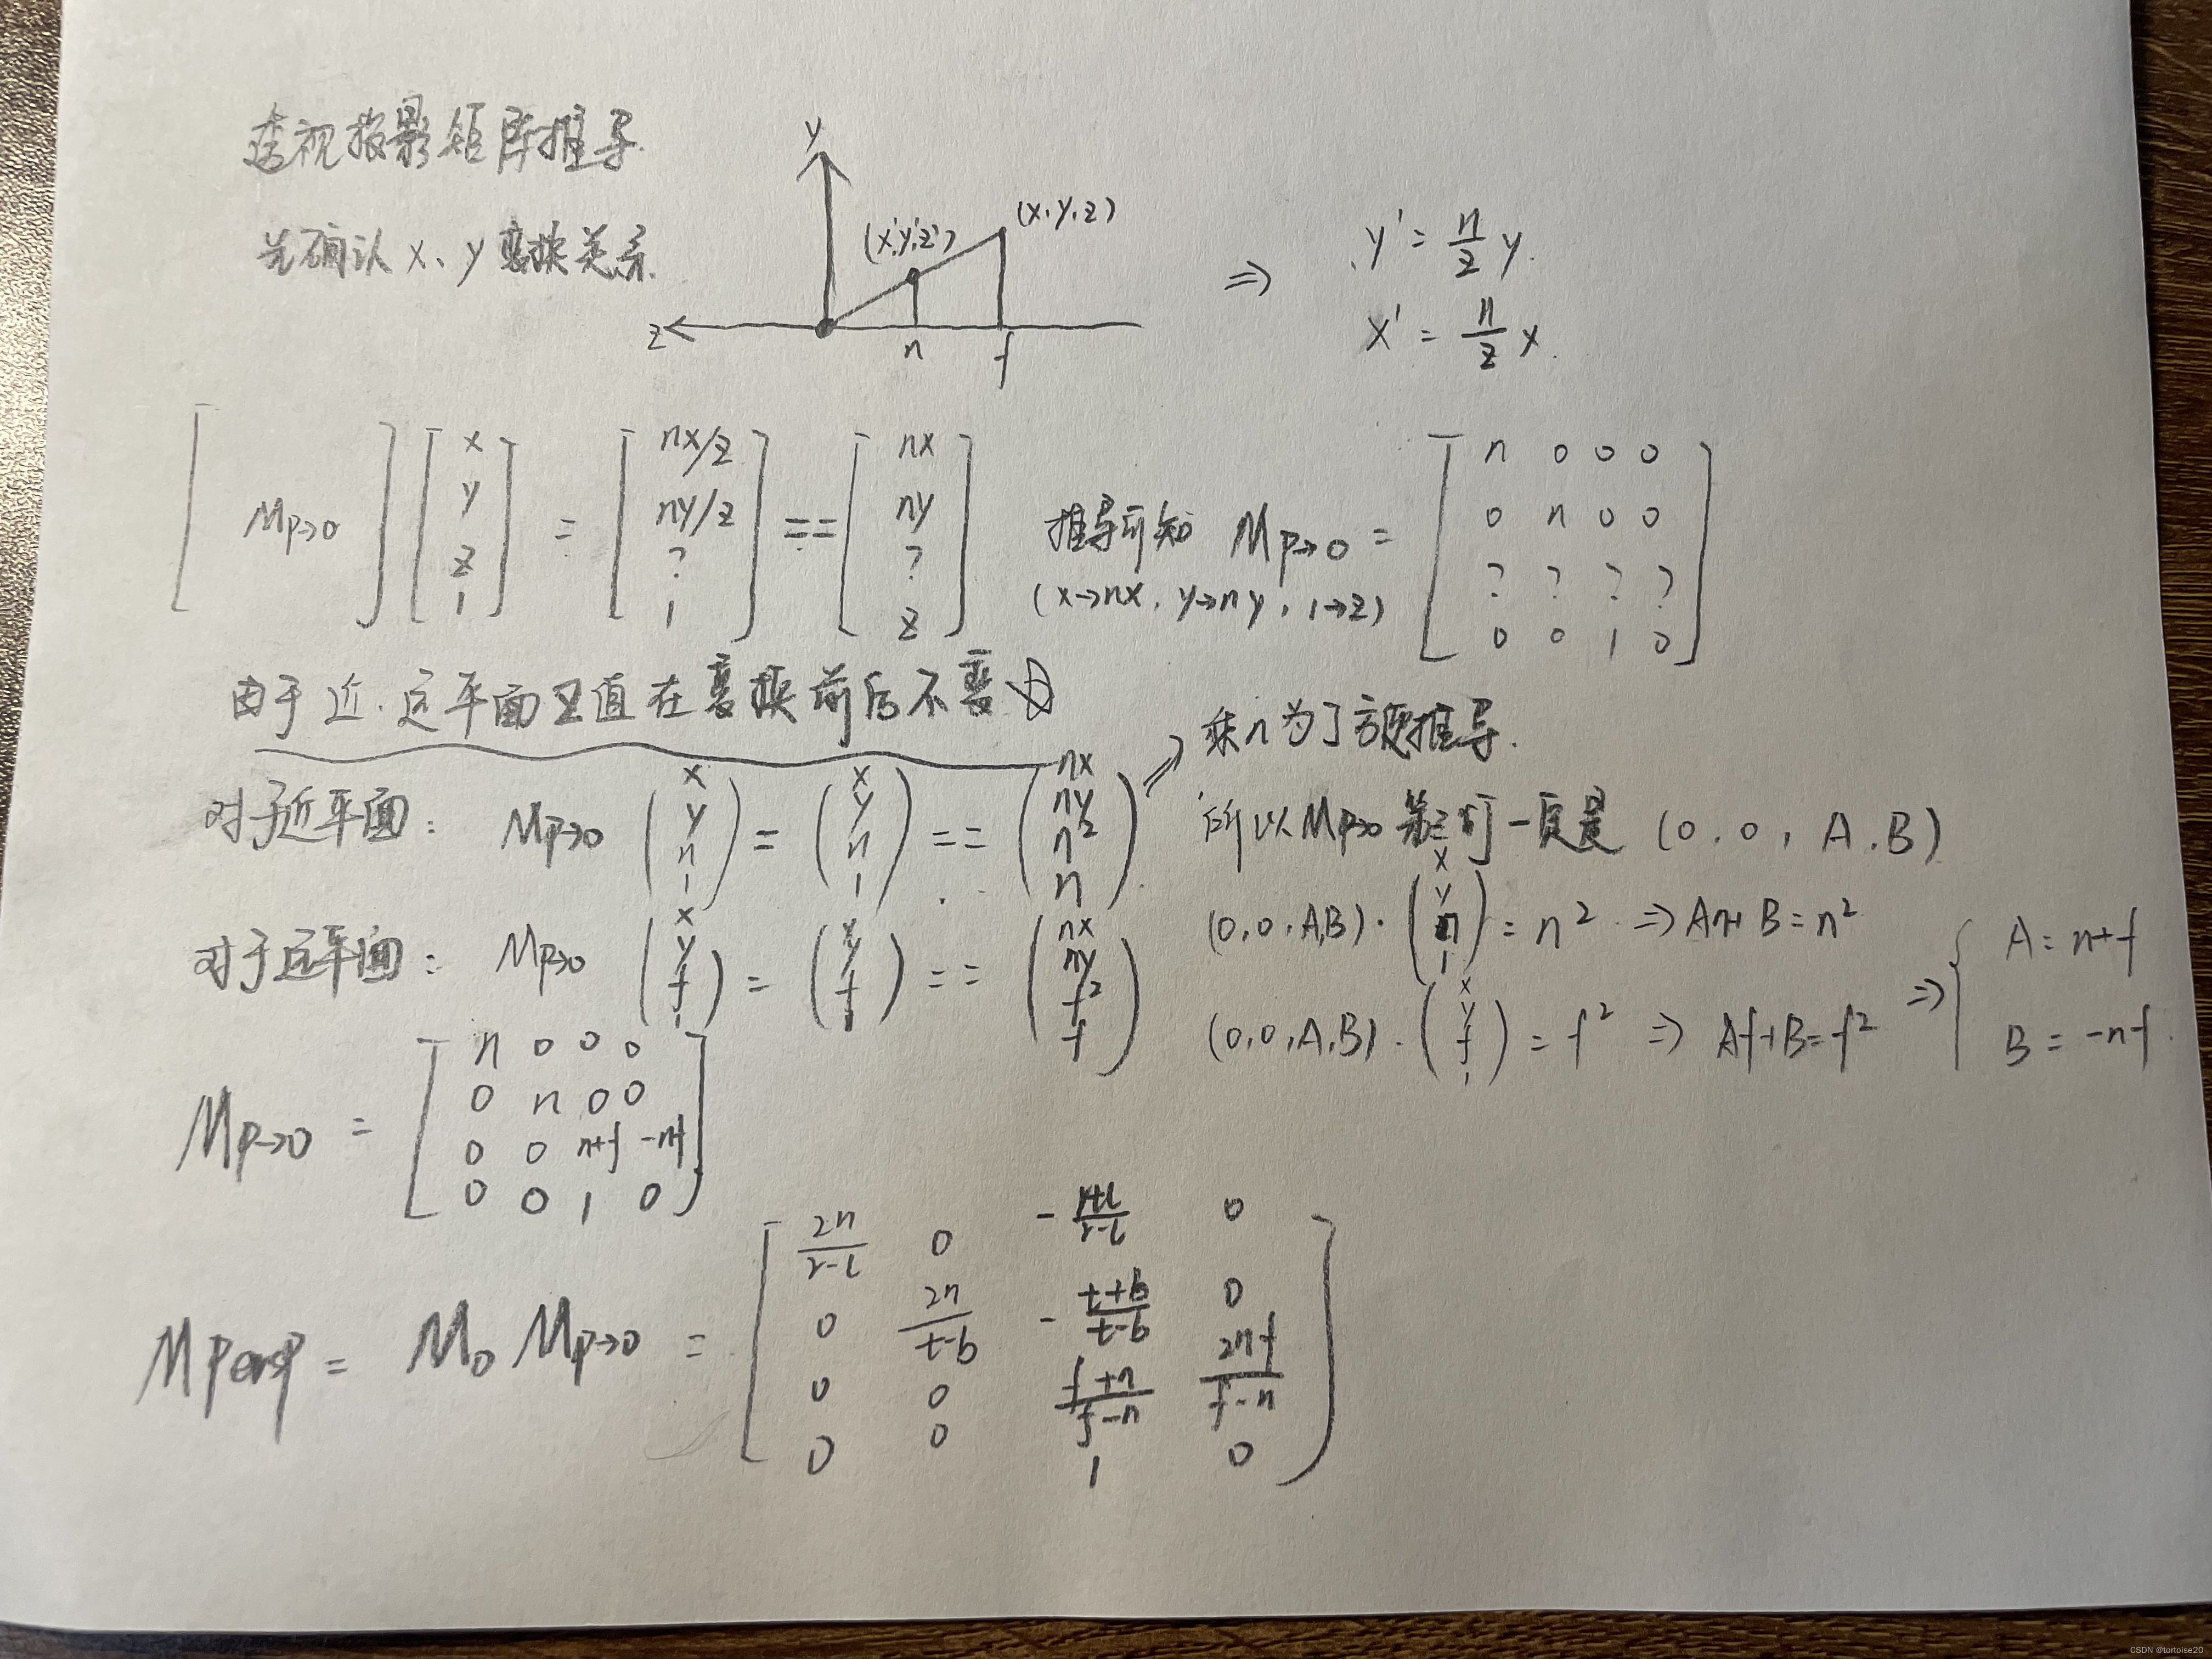 透视投影矩阵推导
先确认 x、y 变换关系
y
(x',y',z')
(x, y, z)
z
n
f
⇒
y' = n/z y
x' = n/z x
[ Mp→o ] [ x y z 1 ] = [ nx/z ny/z ? 1 ] == [ nx ny ? z ]
推导可知 Mp→o = [ n 0 0 0
0 n 0 0
? ? ? ?
0 0 1 0 ]
(x→nx, y→ny, 1→z)
由于近.远平面Z值在变换前后不变
⇒ 乘n为了方便推导.
对于近平面: Mp→o ( x y n 1 ) = ( x y n 1 ) == ( nx ny n² n )
所以Mp→o 第三行一定是 (0, 0, A, B)
(0, 0, A, B) · ( x y n 1 ) = n² ⇒ An+B = n²
对于远平面: Mp→o ( x y f 1 ) = ( x y f 1 ) == ( nx ny f² f )
(0, 0, A, B) · ( x y f 1 ) = f² ⇒ Af+B = f²
⇒ { A = n+f
B = -nf
Mp→o = [ n 0 0 0
0 n 0 0
0 0 n+f -nf
0 0 1 0 ]
Mpersp = Mo Mp→o = [ 2n/r-l 0 - r+l/r-l 0
0 2n/t-b - t+b/t-b 0
0 0 f+n/f-n 2nf/f-n
0 0 1 0 ]
CSDN @tortoise20